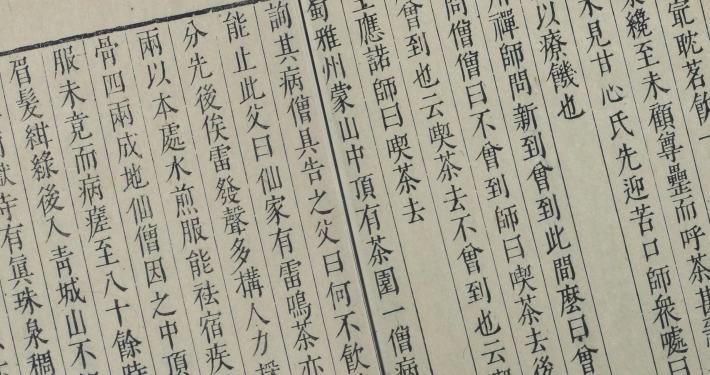 耽茗飲
纔至未顧尊罍而呼茶甚
未見甘心氏先迎苦口師衆噱曰
以療饑也
禪師問新到曾到此間麼曰曾
問僧僧曰不曾到師曰喫茶去後
曾到也云喫茶去不曾到也云
應諾師曰喫茶去
蜀雅州蒙山中頂有茶園一僧病
詢其病僧具告之父曰何不飲
能止此父曰仙家有雷鳴茶亦
分先後俟雷發聲多構人力採
兩以本處水煎服能祛宿疾
骨四兩成地仙僧因之中頂
服未竟而病瘥至八十餘時
眉髮紺綠後入青城山不
寺有眞珠泉稠